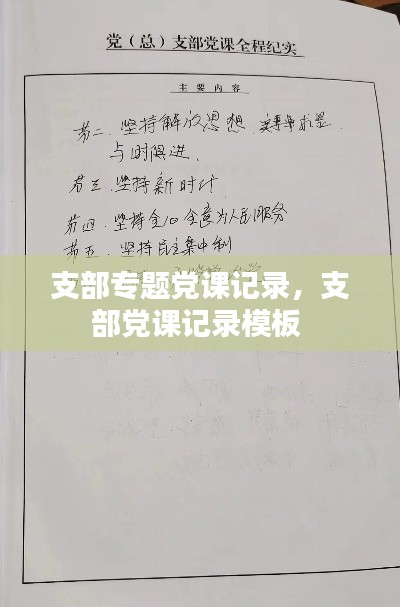 党（总）支部党课全程纪实
主要内容
第二、坚持解放思想、实事求是
与时俱进、
第三、坚持新时代
第四、坚持全心全意为人民服务
第五、坚持民主集中制
支部专题党课记录，支
部党课记录模板